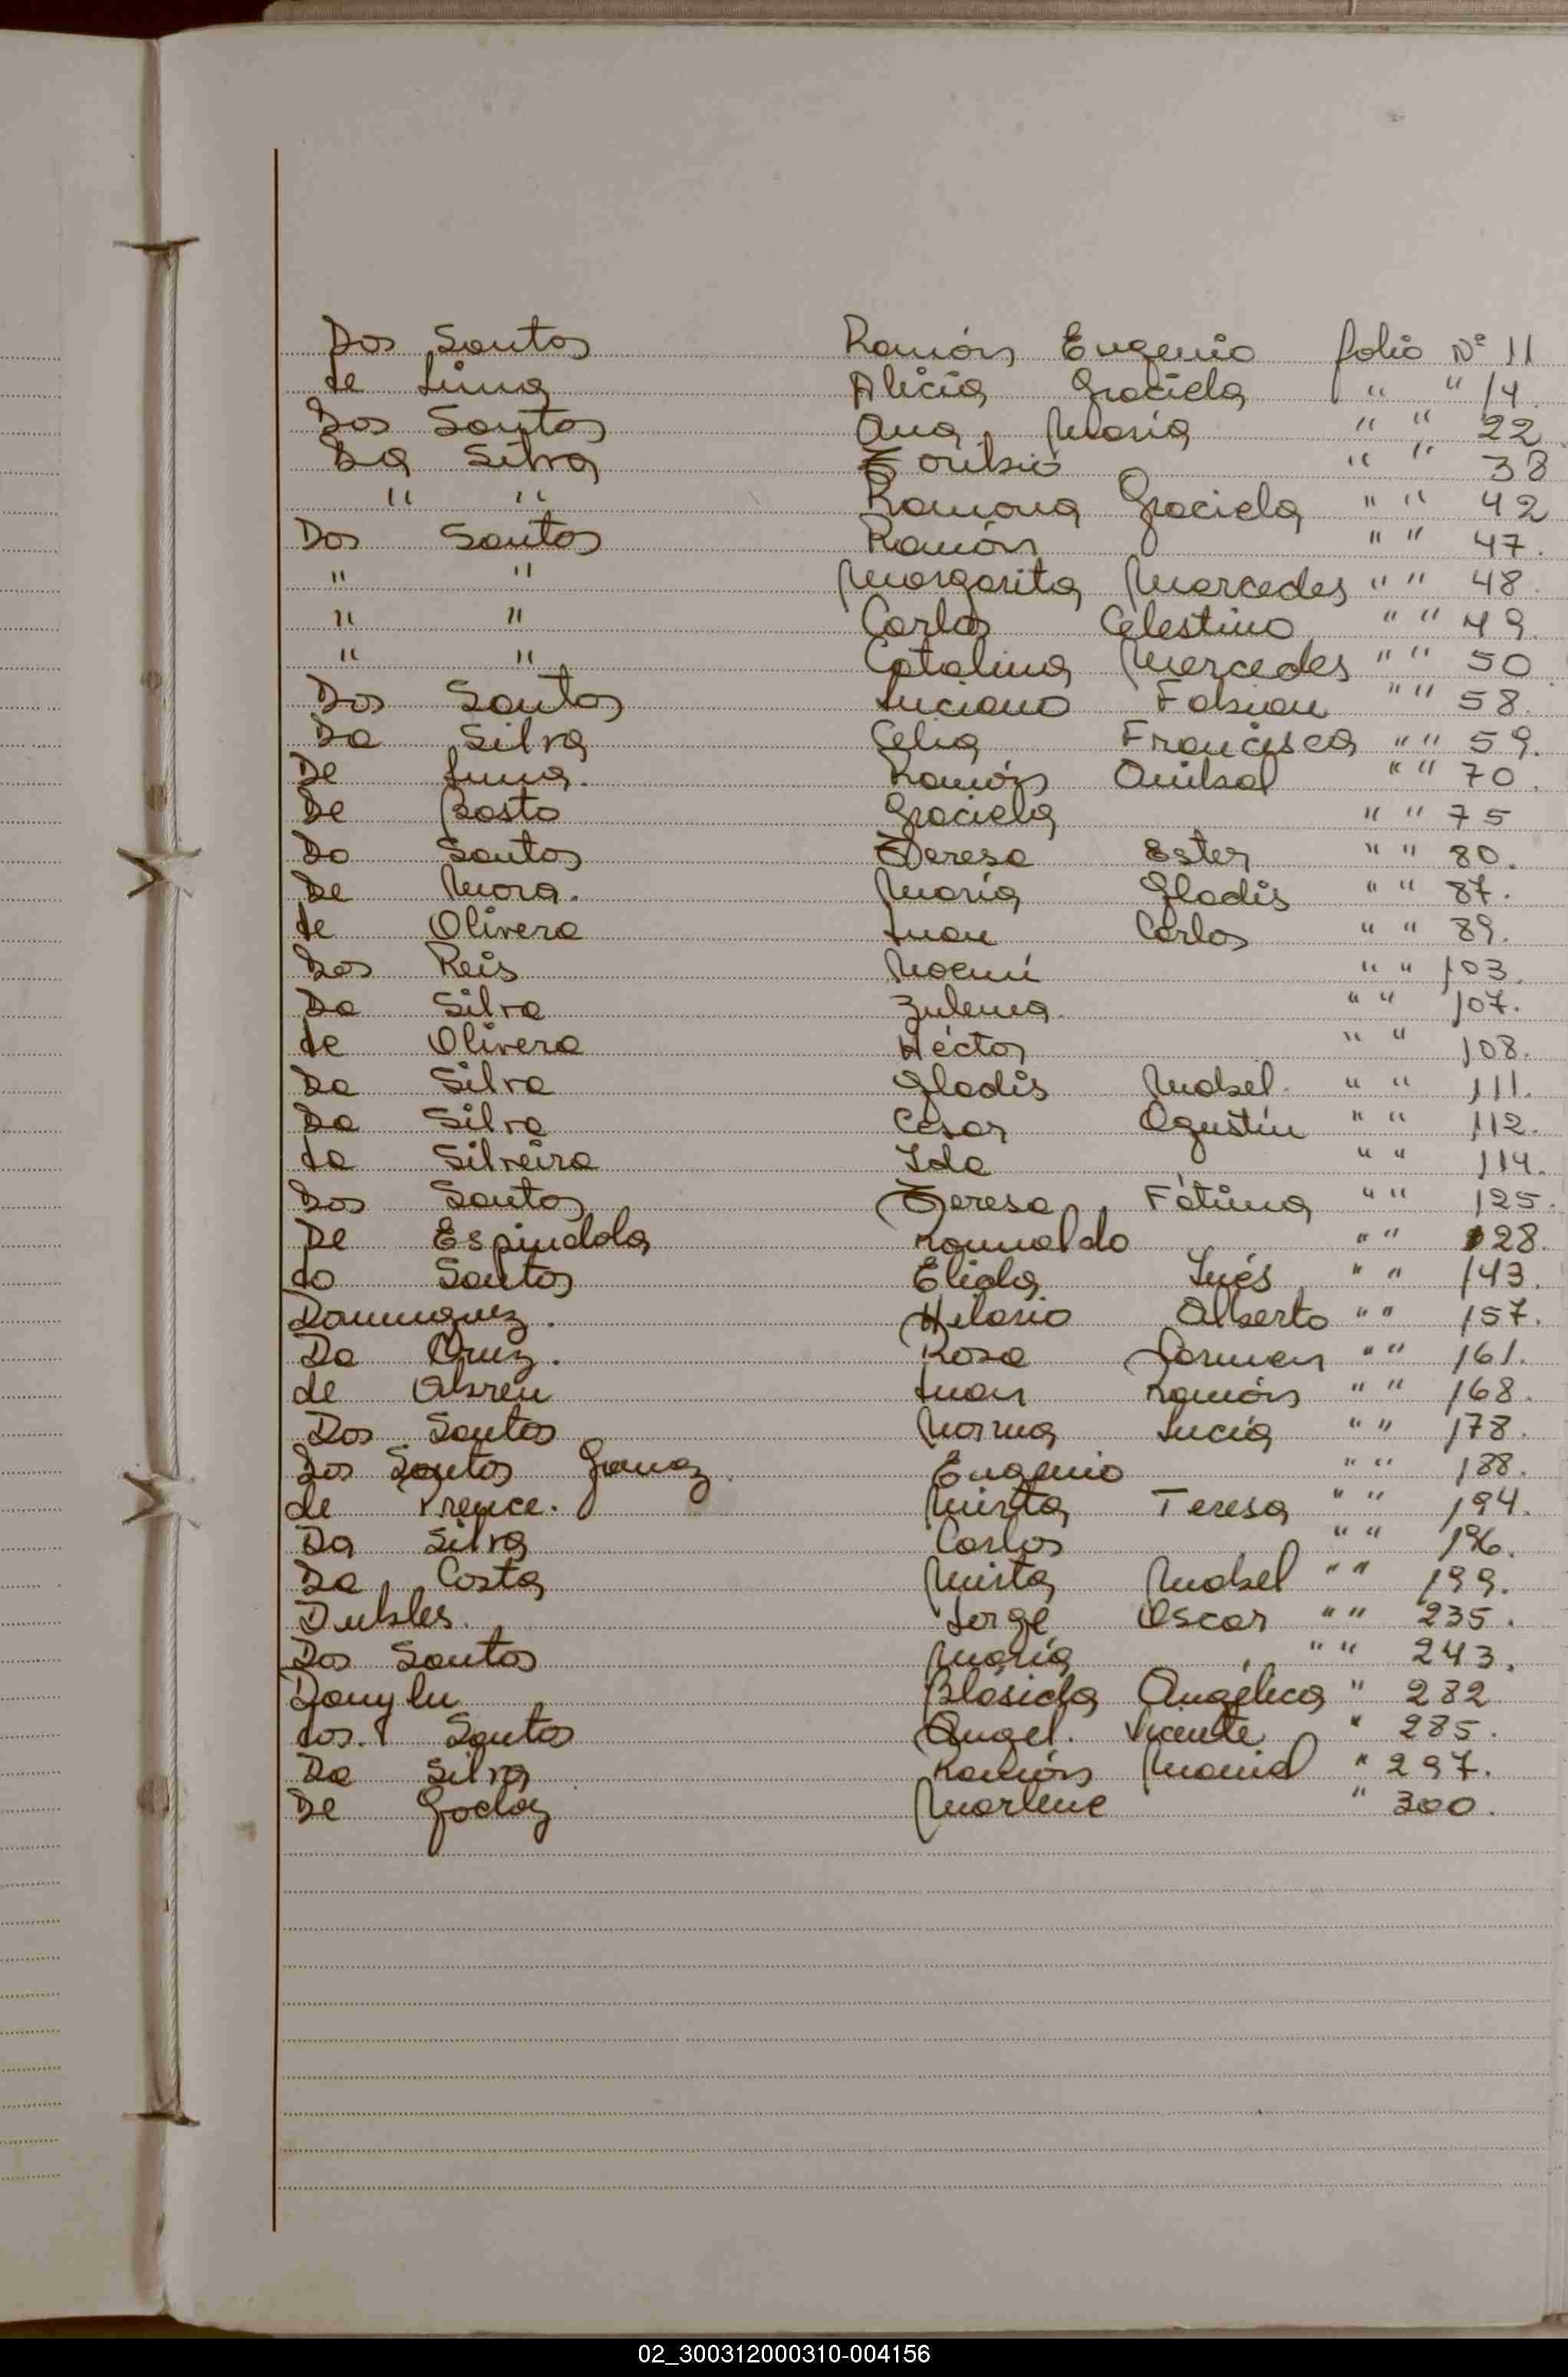 Dos Santos Ramón Eugenio folio Nº 11
de Lima Alicia Graciela " " 14
Dos Santos Ana María " " 22
Da Silva Toribio " " 38
" " Ramona Graciela " " 42
Dos Santos Ramón " " 47.
" " Margarita Mercedes " " 48.
" " Carlos Celestino " " 49.
" " Catalina Mercedes " " 50
Dos Santos Luciano Fabian " " 58.
Da Silva Celia Francisca " " 59.
De Luna. Ramón Anibal " " 70.
De Basto Graciela " " 75
Do Santos Teresa Ester " " 80.
De Mora. María Gladis " " 87.
de Olivera Juan Carlos " " 89.
Dos Reis Noemí " " 103.
Da Silva Zulema. " " 107.
de Olivera Héctor " " 108.
Da Silva Gladis Mabel. " " 111.
Da Silva Cesar Agustín " " 112.
da Silveira Ida " " 114.
Dos Santos Teresa Fátima " " 125.
De Espindola Romualdo " " 128.
do Santos Elida Inés " " 143.
Dominguez. Hilario Alberto " " 157.
Da Cruz. Rosa Carmen " " 161.
de Abreu Juan Ramón " " 168.
Dos Santos Norma Lucía " " 178.
Dos Santos Eugenio " " 188.
de Mirta Teresa " " 194.
Da Silva Carlos " " 196.
Da Costa Mirta Mabel " " 199.
Dubles. Jorge Oscar " " 235.
Dos Santos María " " 243.
Danyluc Blásida Angélica " 282
dos. Santos Angel. Vicente " 285.
Da Silva Ramón " 297.
De Godoy Marlene " 300.
02_300312000310-004156